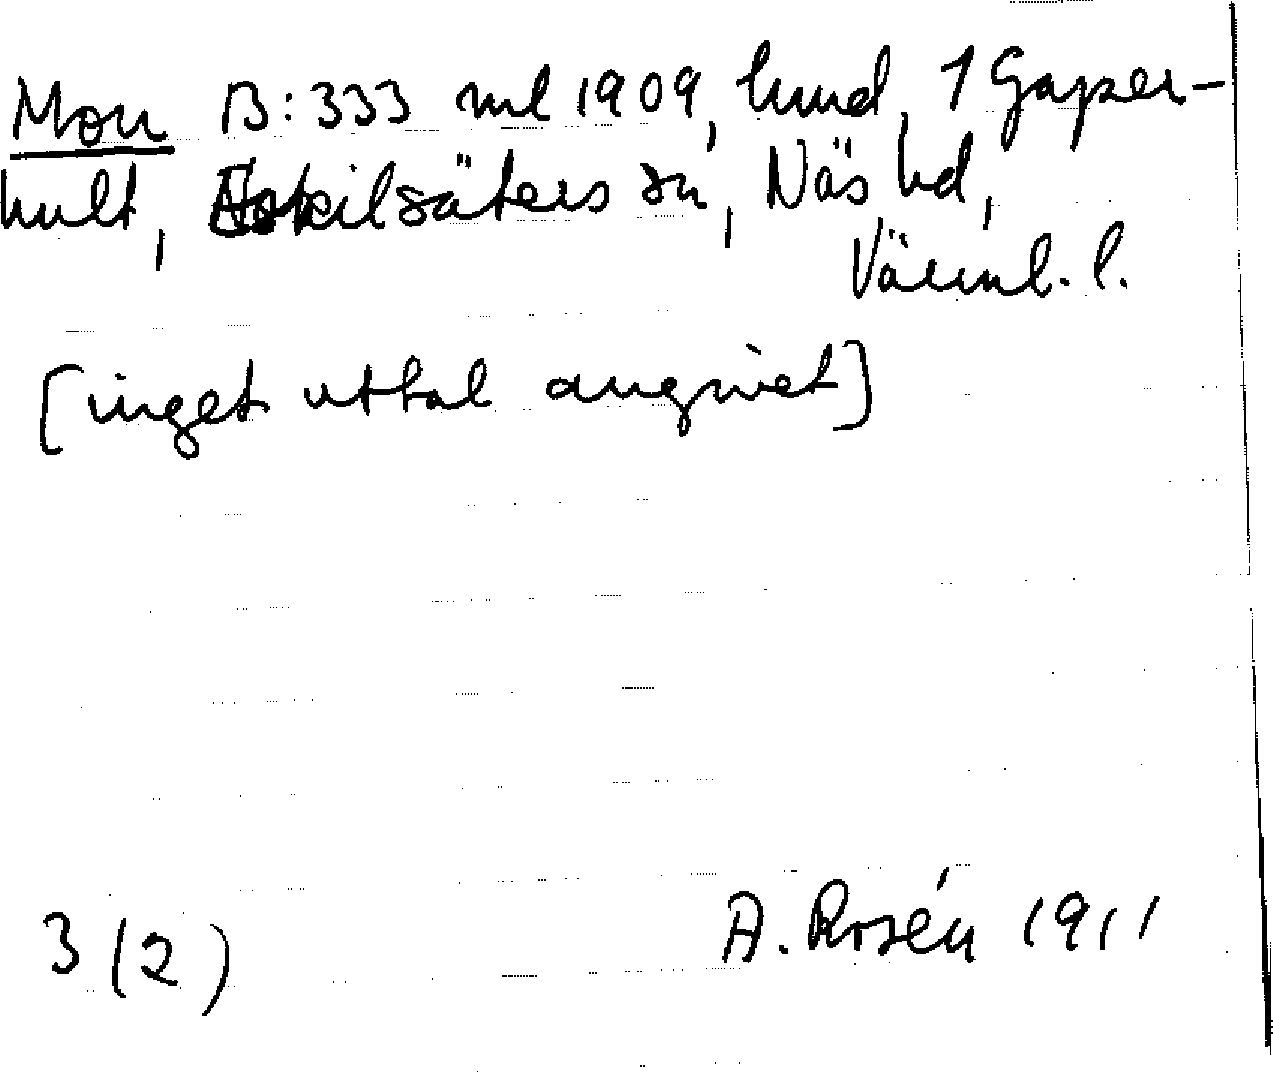 Mon B:333 ml 1909, hmd, 1 Gaper-
hult, Eskilsäters sn, Näs hd,
Värml. l.
[inget uttal angivet]
3 (2) A. Rosén 1911